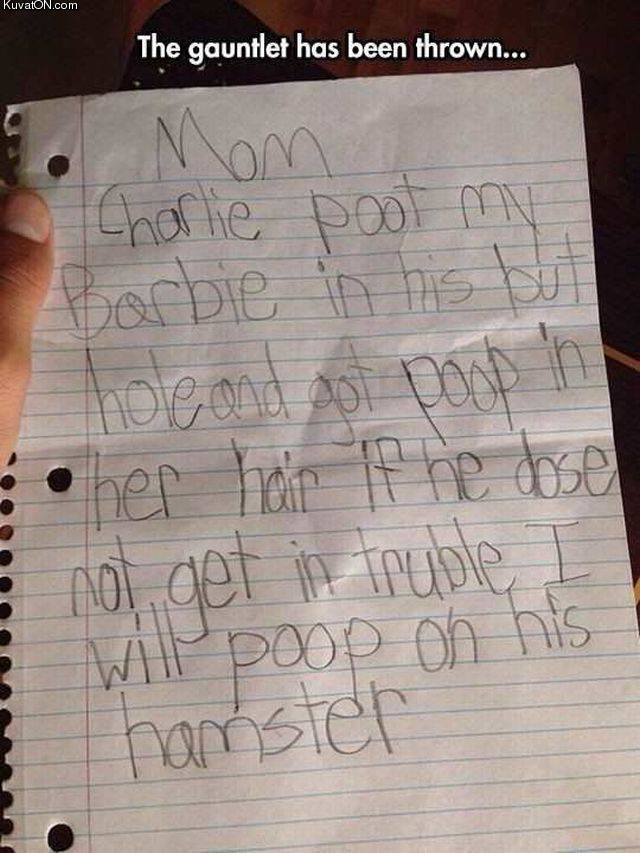 KuvatON.com
The gauntlet has been thrown...
Mom
Charlie poot my
Barbie in his but
hole and got poop in
her hair if he dose
not get in truble I
will poop on his
hamster